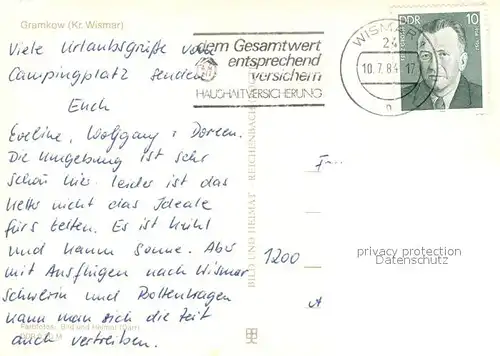 Gramkow (Kr. Wismar)
Viele Urlaubsgrüße vom
Campingplatz senden
Euch
Eveline, Wolfgang u. Doreen.
Die Umgebung ist sehr
schön hier. Leider ist das
Wetter nicht das Ideale
fürs Zelten. Es ist kühl
und kaum Sonne. Aber
mit Ausflügen nach Wismar
Schwerin und Boltenhagen
kann man sich die Zeit
auch vertreiben.
dem Gesamtwert
entsprechend
versichern
HAUSHALTVERSICHERUNG
WISMAR
10.7.84-17
n
DDR 10
BILD UND HEIMAT REICHENBACH
1200
privacy protection
Datenschutz